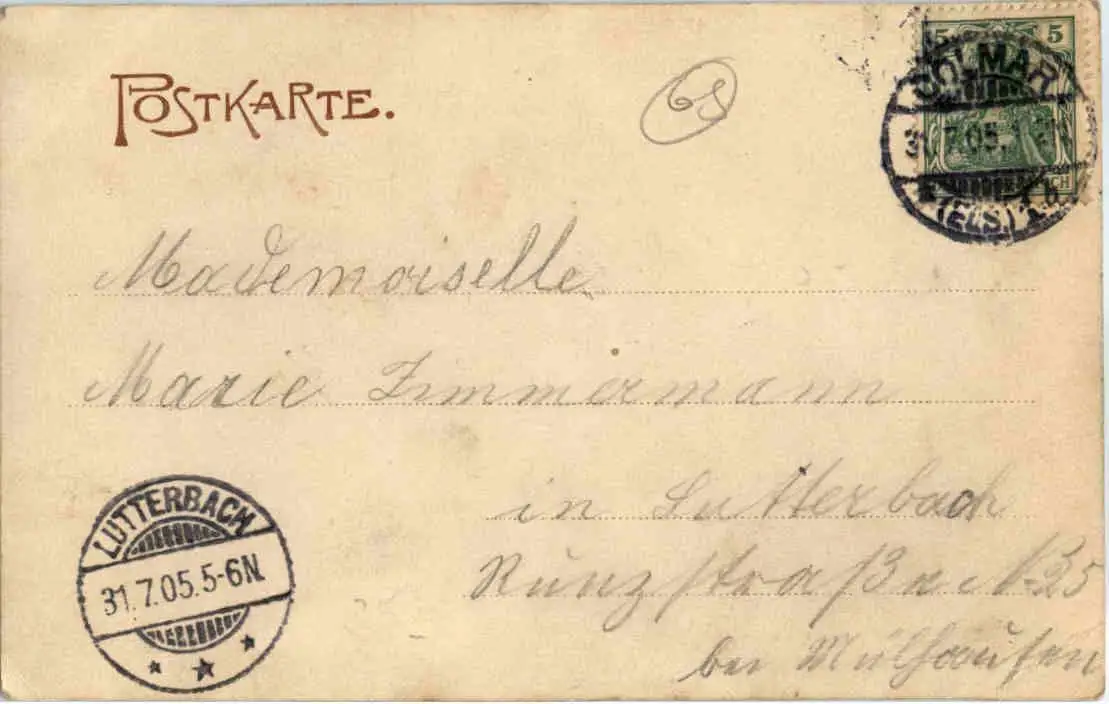 POSTKARTE.
68
5 5
COLMAR
31.7.05.
(ELS.)
b
Mademoiselle
Marie Zimmermann
in Lutterbach
Runzstraße N. 35
bei Mülhausen
LUTTERBACH
31.7.05.5-6N.